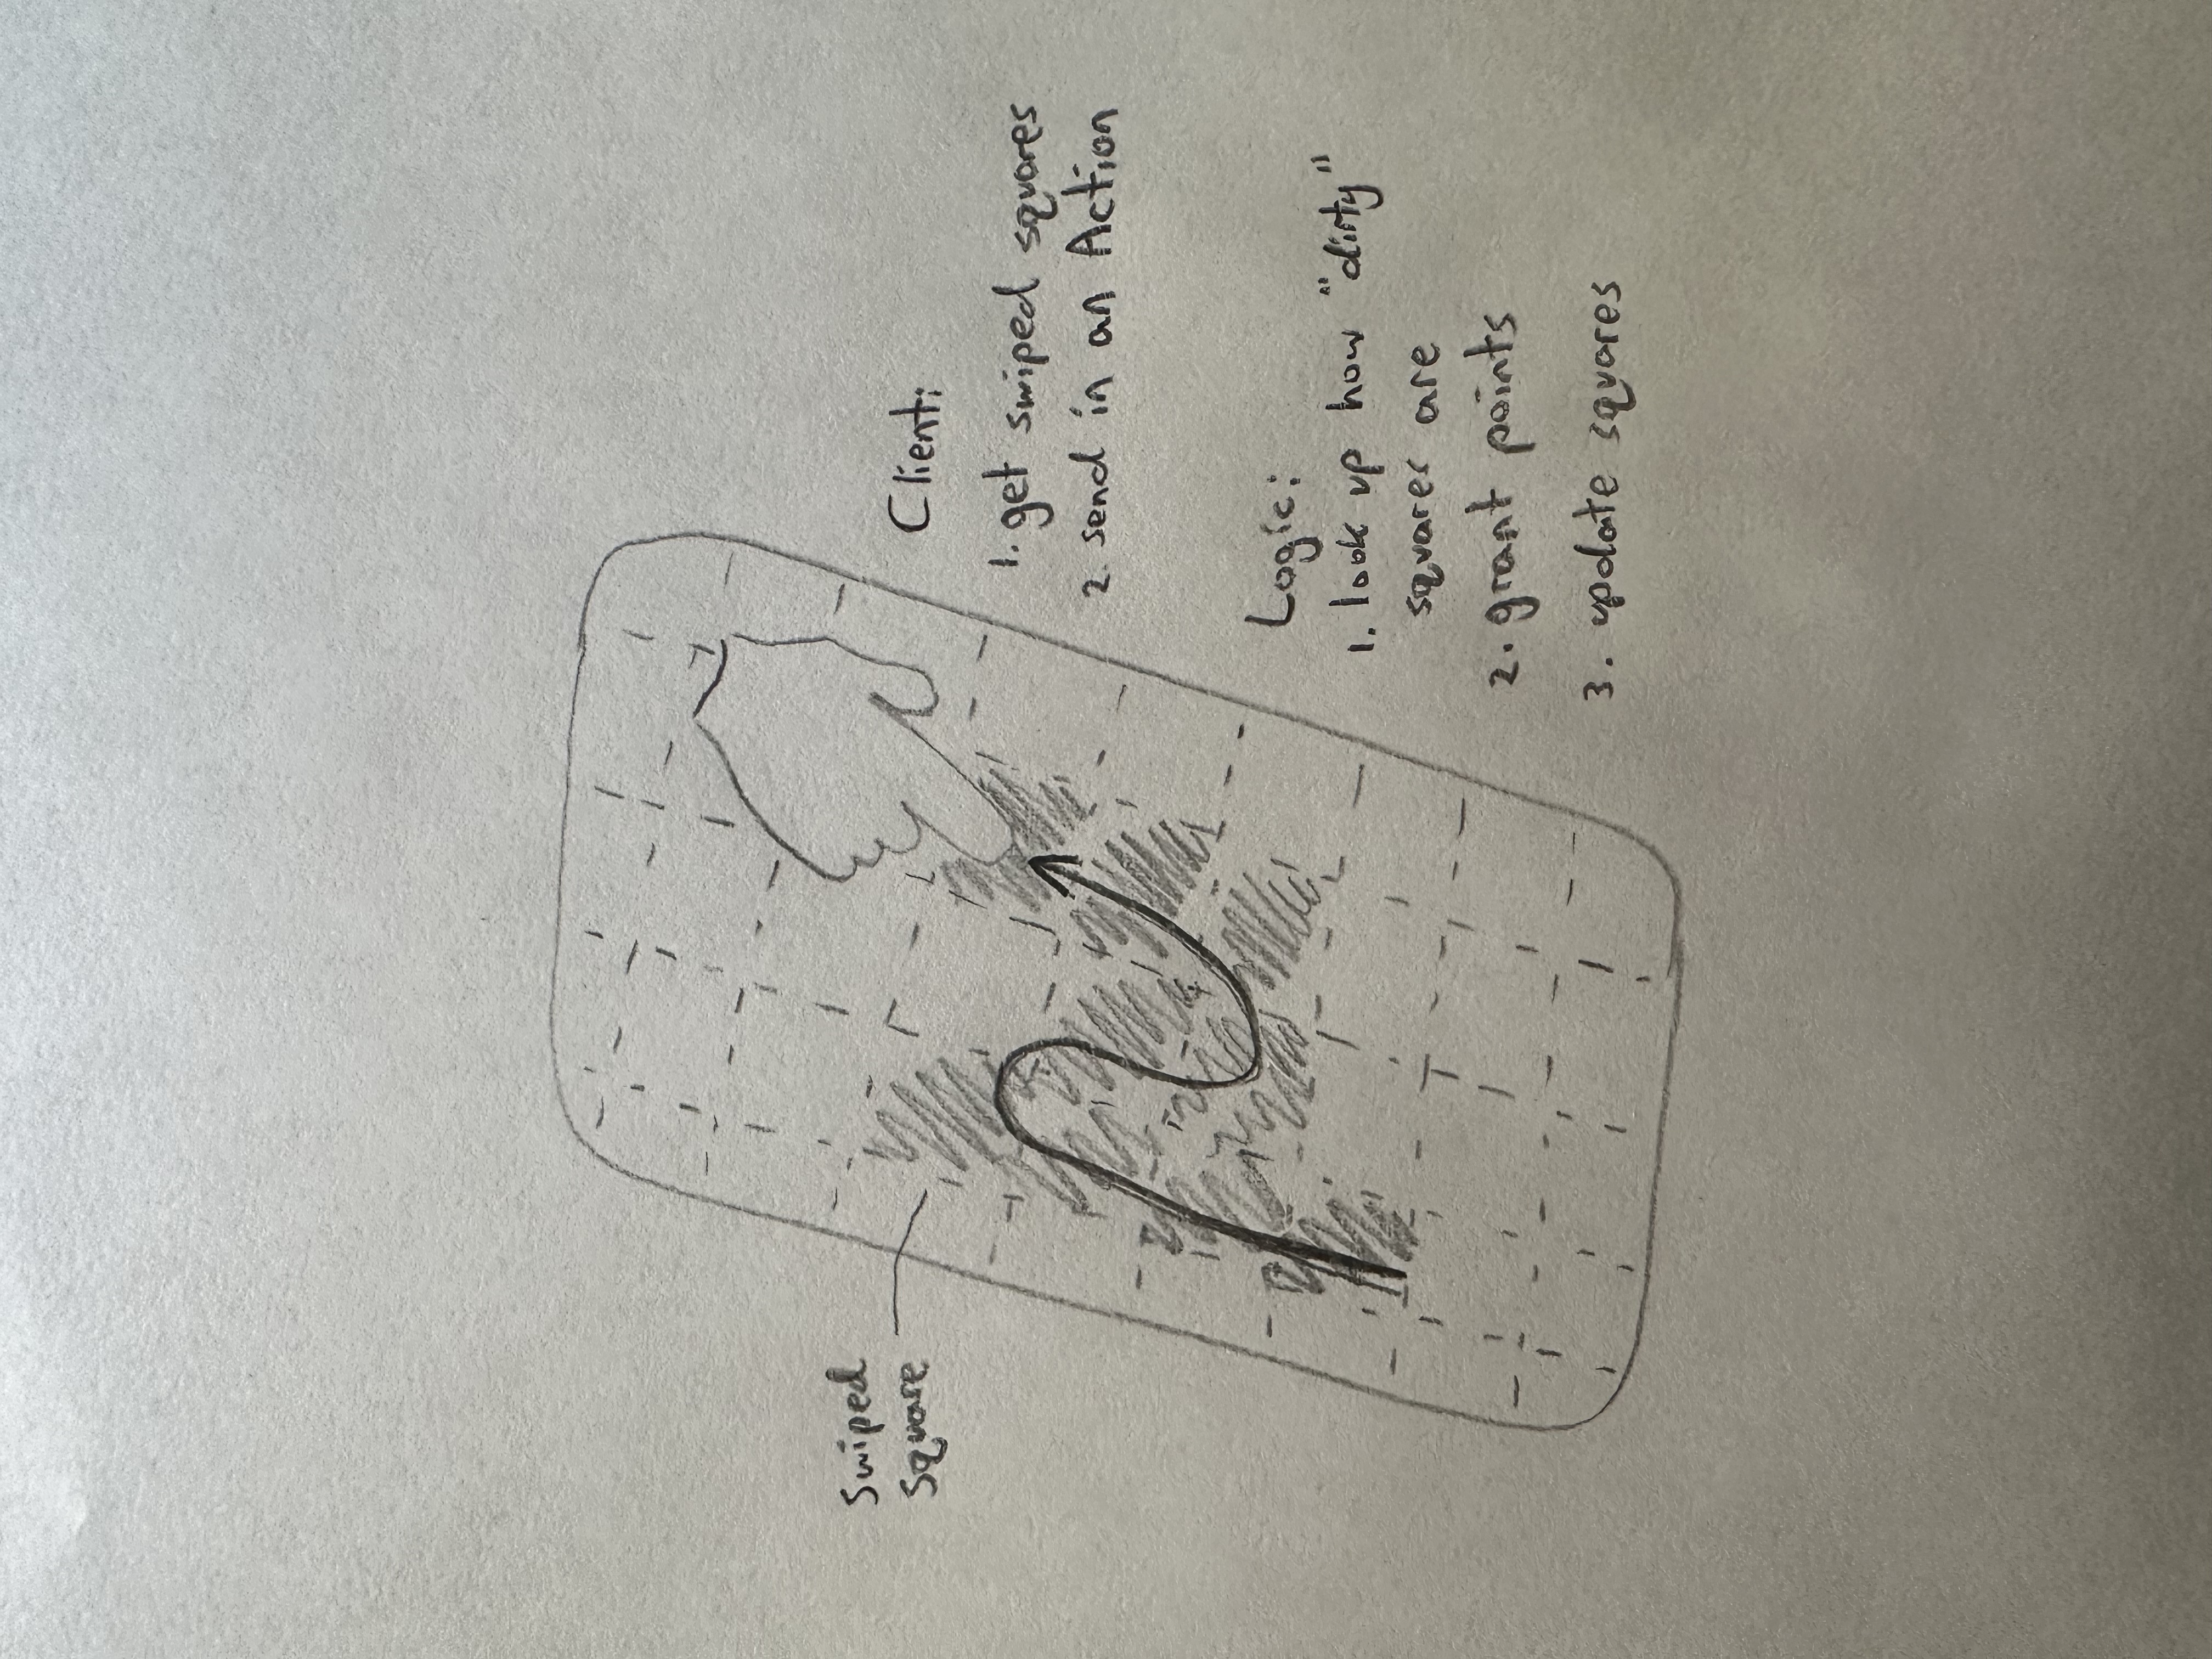 Swiped
Square
Client:
1. get swiped squares
2. send in an Action
Logic:
1. look up how "dirty"
squares are
2. grant points
3. update squares